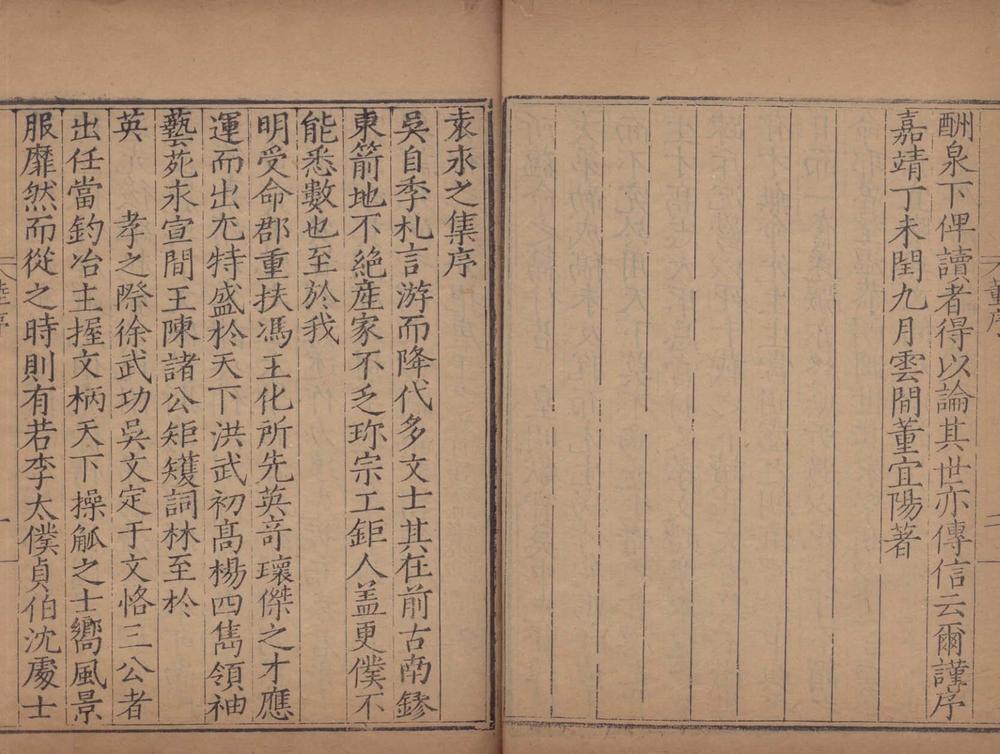 酬泉下俾讀者得以論其世亦傳信云爾謹序
嘉靖丁未閏九月雲間董宜陽著
袁永之集序
吳自季札言游而降代多文士其在前古南鏐
東箭地不絕産家不乏珎宗工鉅人盖更僕不
能悉數也至於我
明受命郡重扶馮王化所先英竒瓌傑之才應
運而出尢特盛於天下洪武初髙楊四雋領袖
藝苑永宣間王陳諸公矩矱詞林至於
英 孝之際徐武功吳文定于文恪三公者
出任當鈞冶主握文柄天下操觚之士嚮風景
服靡然而從之時則有若李太僕貞伯沈處士